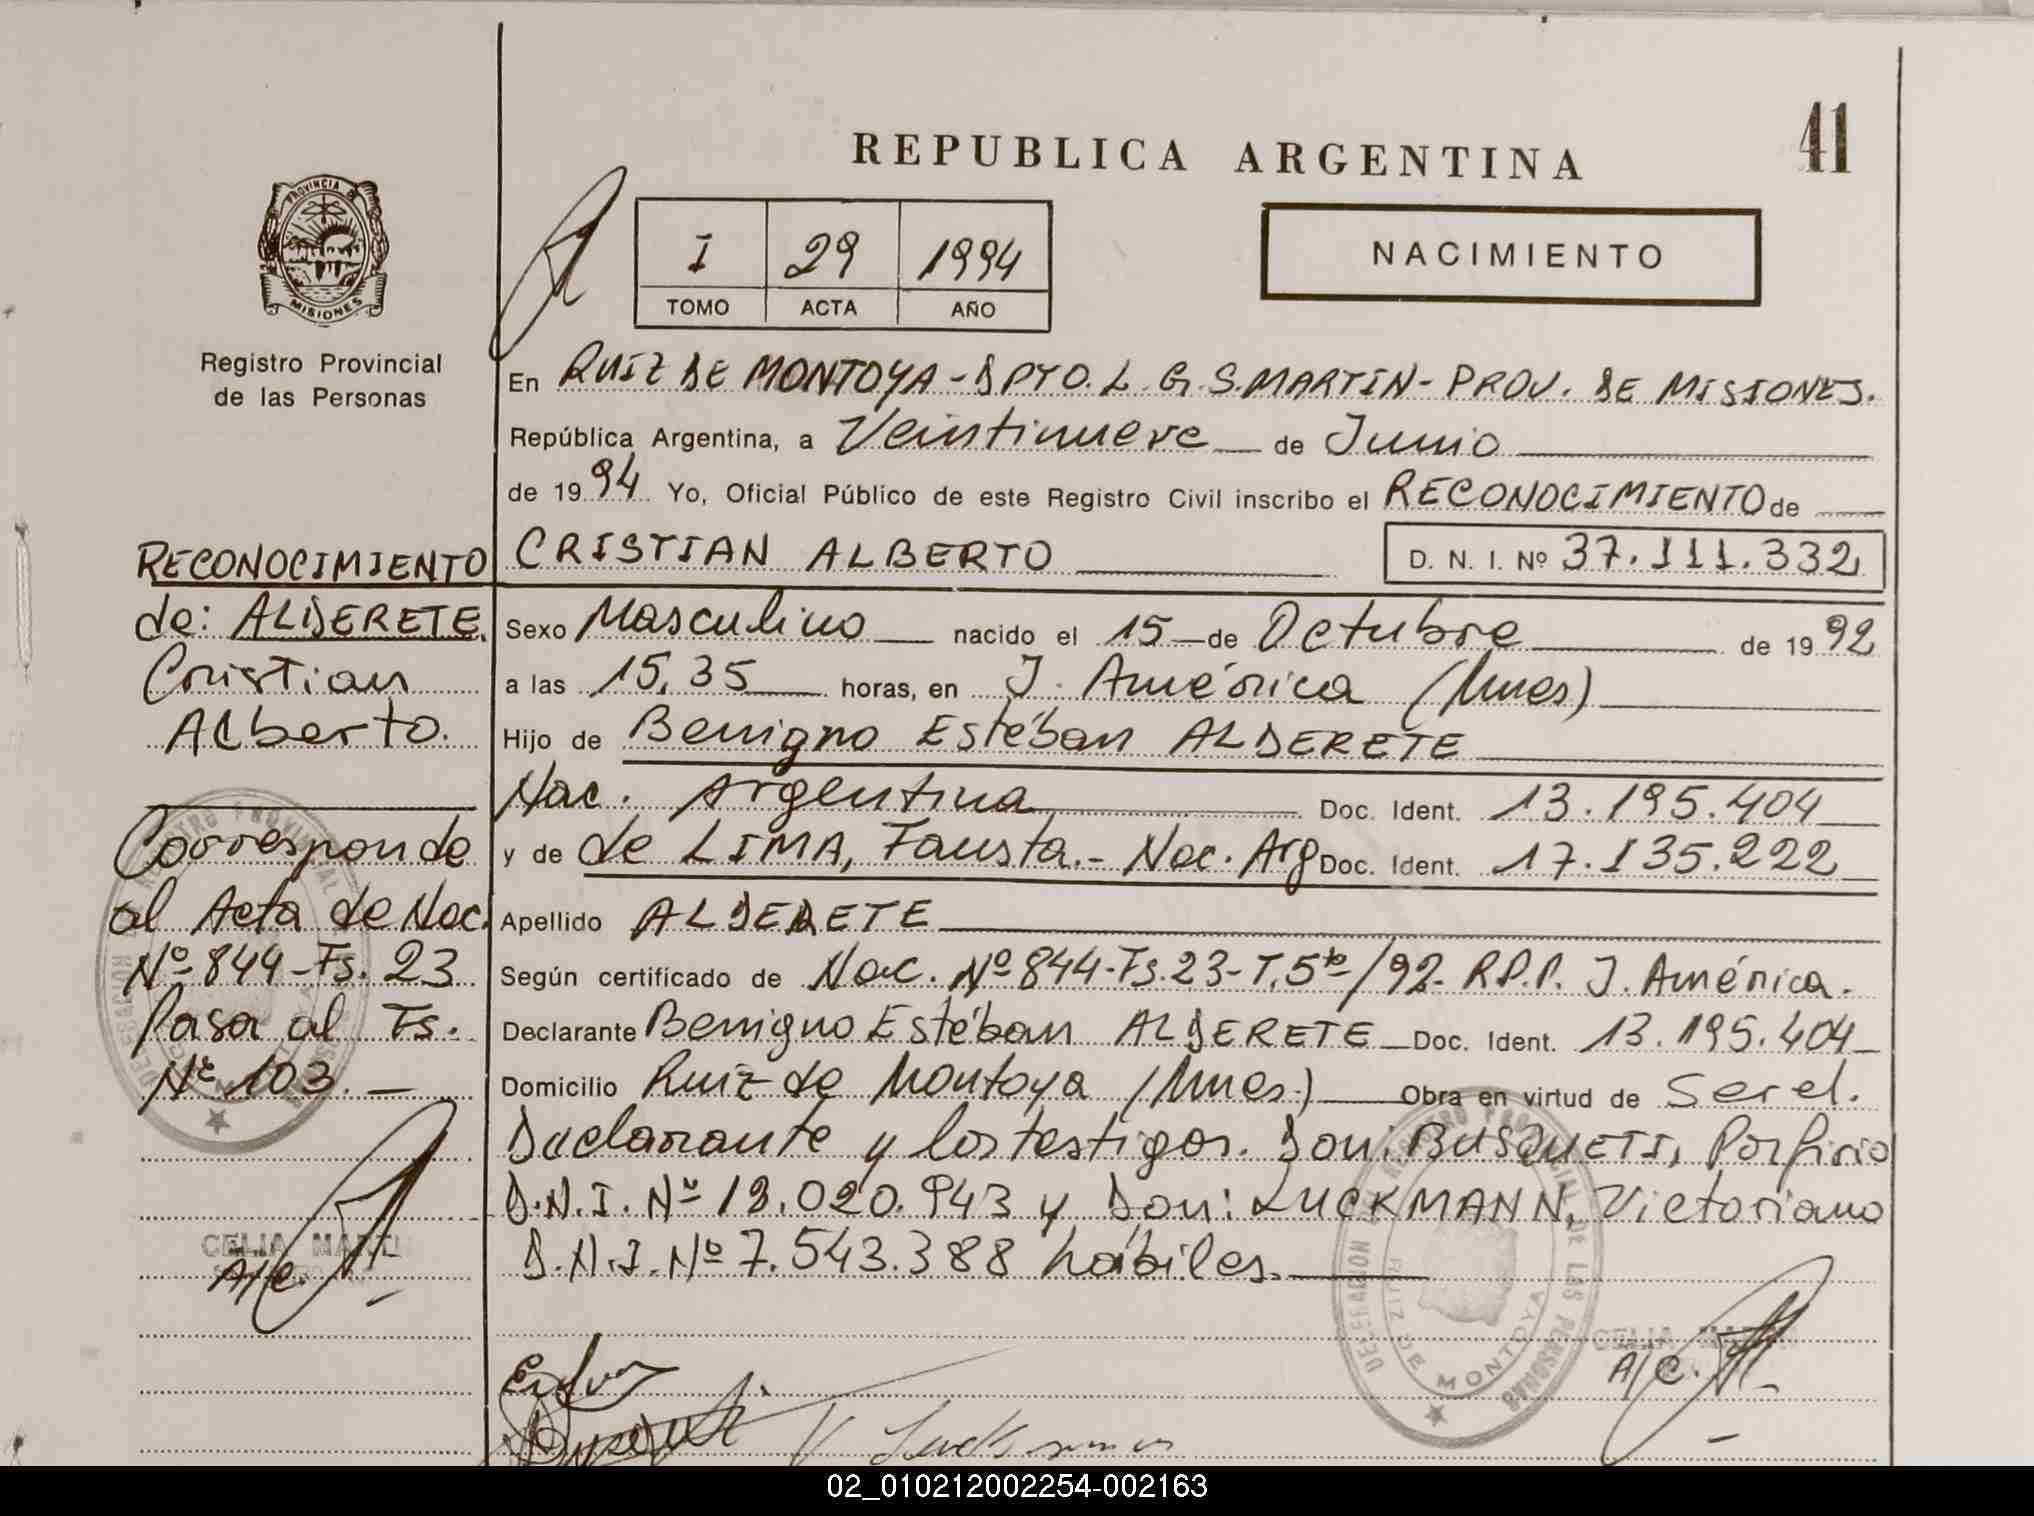 41
REPUBLICA ARGENTINA
PROVINCIA DE
MISIONES
Registro Provincial
de las Personas
I 29 1994
TOMO ACTA AÑO
NACIMIENTO
En RUIZ DE MONTOYA - DPTO. L. G. S. MARTIN - PROV. DE MISIONES.
República Argentina, a Veintinueve de Junio
de 1994 Yo, Oficial Público de este Registro Civil inscribo el RECONOCIMIENTO de
CRISTIAN ALBERTO D. N. I. Nº 37.111.332
Sexo Masculino nacido el 15 de Octubre de 1992
a las 15,35 horas, en J. América (Mnes)
Hijo de Benigno Estéban ALDERETE
Nac. Argentina Doc. Ident. 13.195.404
y de de LIMA, Fausta.- Nac. Arg Doc. Ident. 17.135.222
Apellido ALDERETE
Según certificado de Nac. Nº 844-Fs.23-T.5to/92- R.P.P. J. América.
Declarante Benigno Estéban ALDERETE Doc. Ident. 13.195.404
Domicilio Ruiz de Montoya (Mnes.) Obra en virtud de Ser el.
Declarante y los testigos. Don: BUSQUETS, Porfirio
D.N.I. Nº 18.020.943 y Don: LUCKMANN, Victoriano
D.N.I. Nº 7.543.388 hábiles.
RECONOCIMIENTO
de: ALDERETE.
Cristian
Alberto.
Corresponde
al Acta de Nac.
Nº 844-Fs. 23
Pasa al Fs.
Nº 103.-
CELIA
A/C.
DELEGACION REGISTRO PROVINCIAL DE LAS PERSONAS
RUIZ DE MONTOYA
CELIA
A/C.
02_010212002254-002163